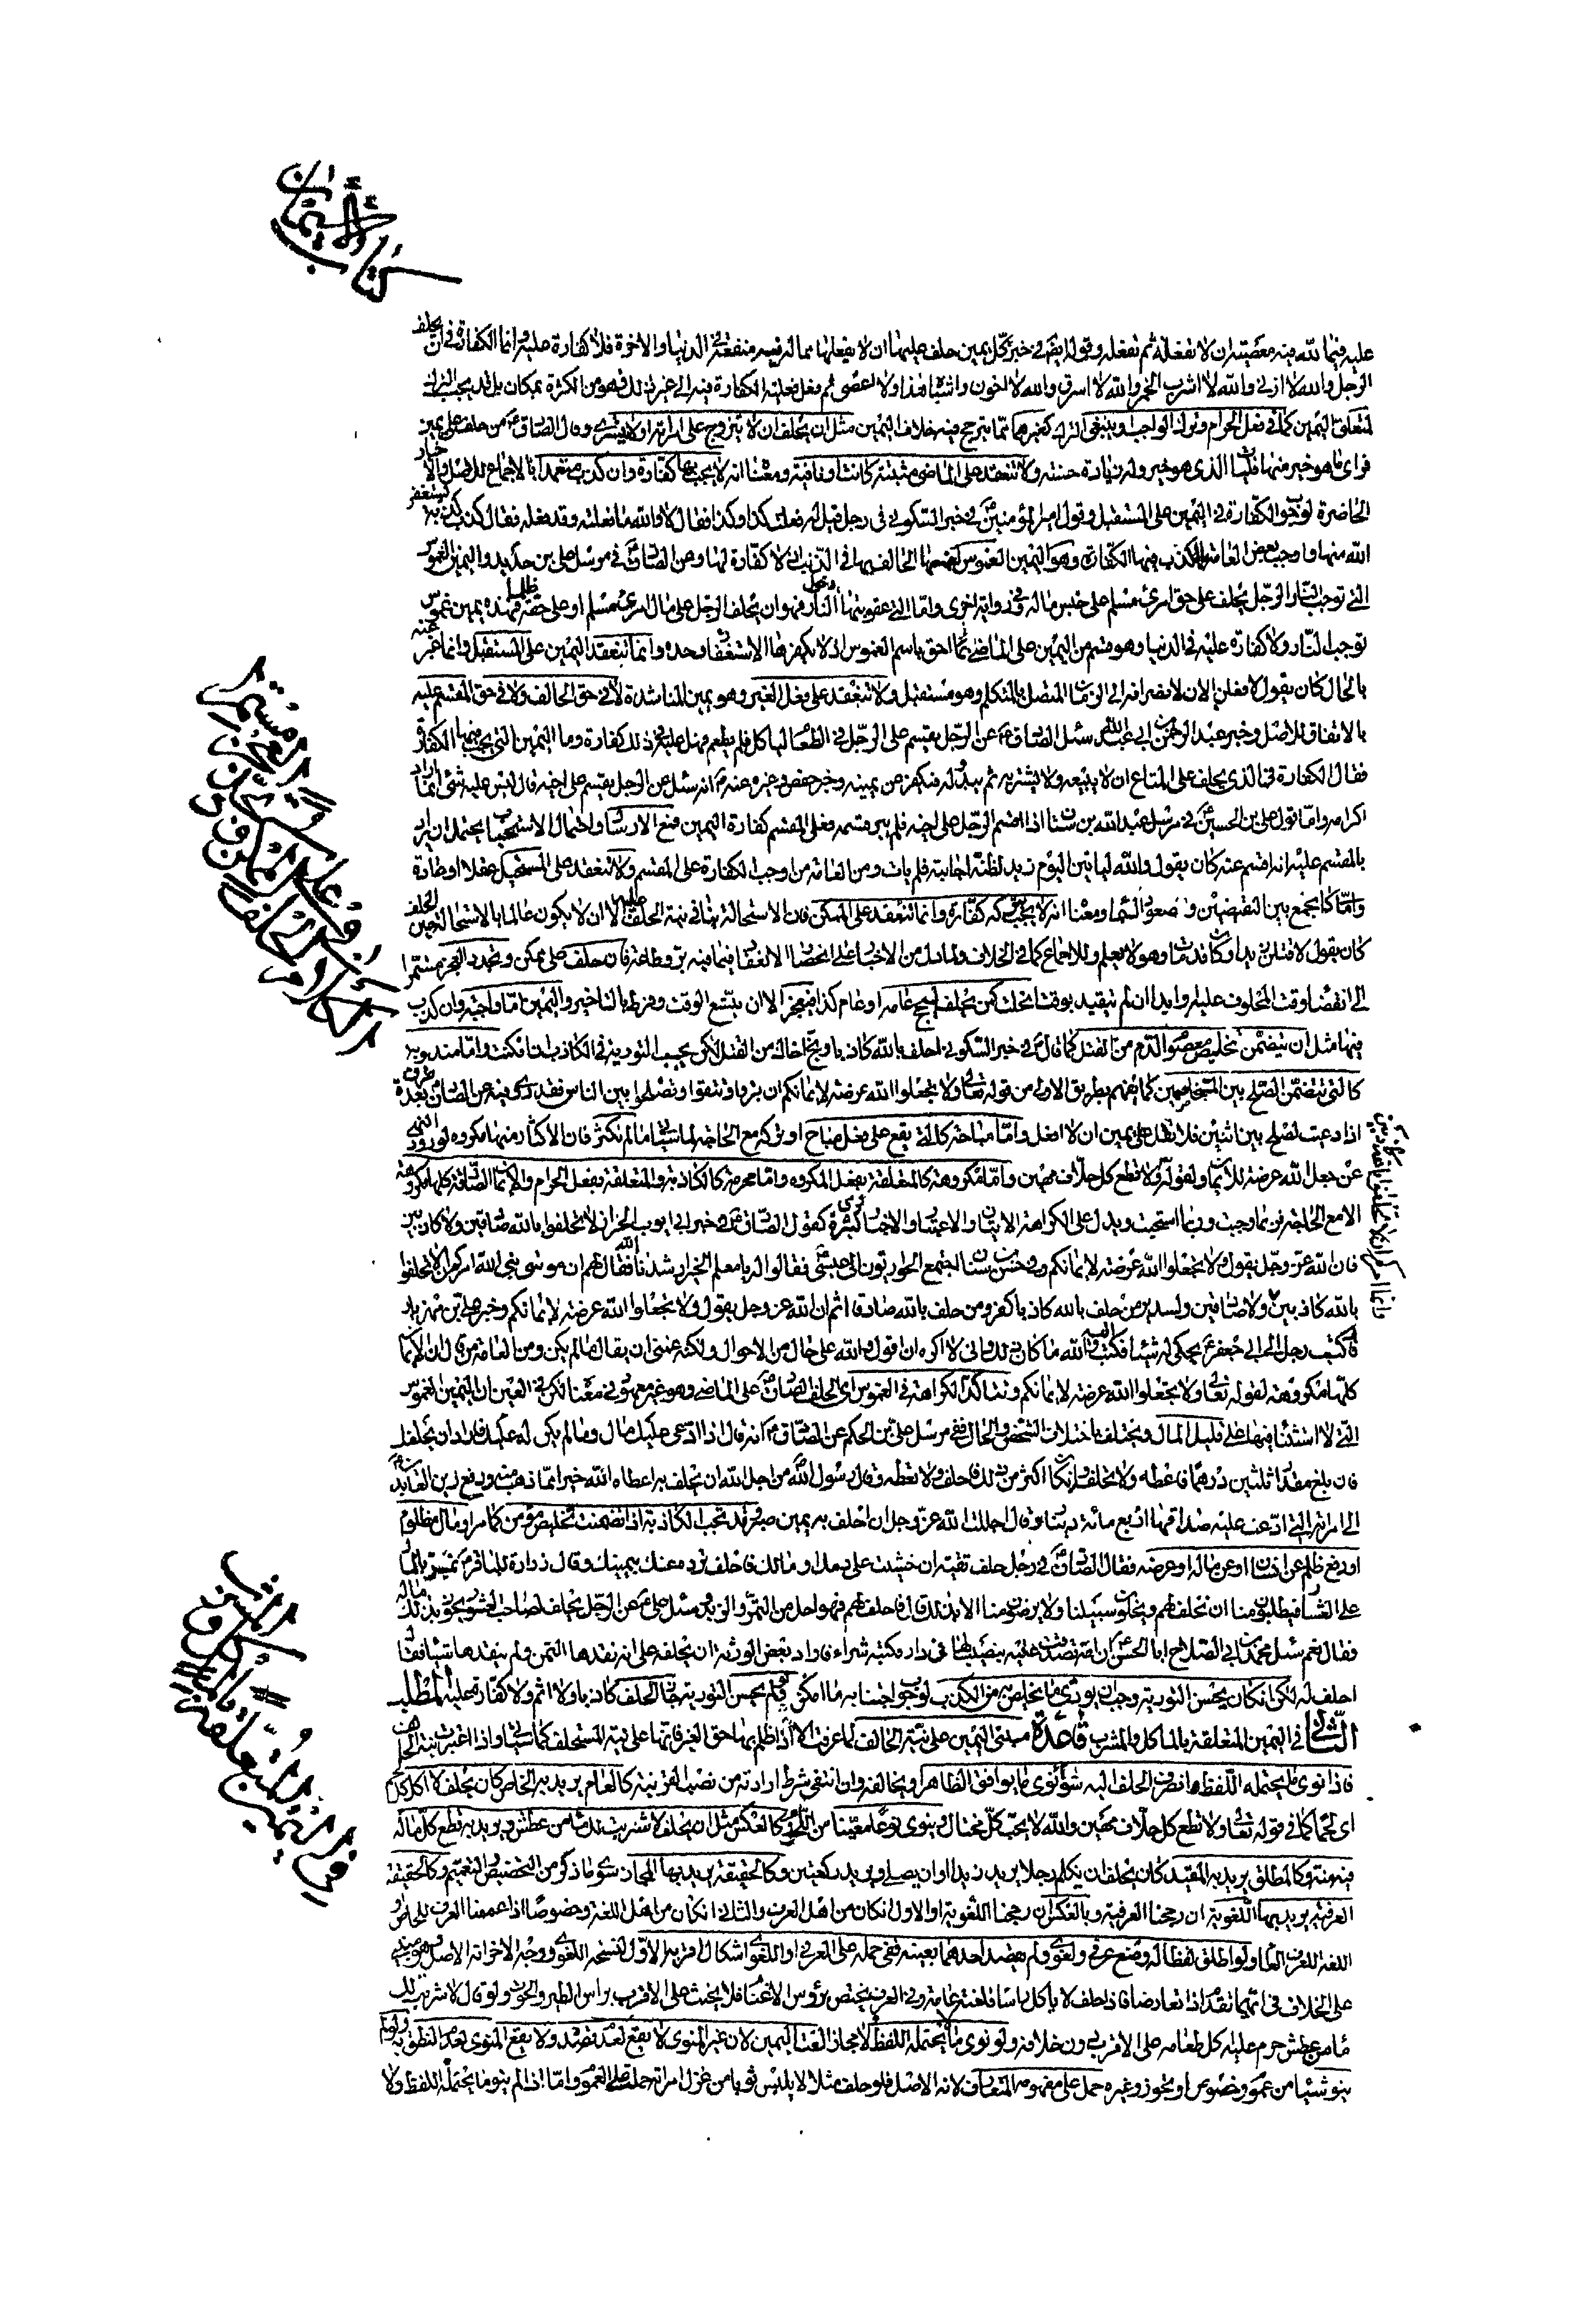 كتاب الأيمان
عليه فيما لله فيه معصية ان لا تفعله ثم تفعله وقوله ايضا في خبر كل يمين حلف عليها ان لا يفعلها مما له فيه منفعة في الدنيا والاخرة فلا كفارة عليه وانما الكفارة في ان يحلف
الرجل والله لا ازني والله لا اشرب الخمر والله لا اسرق والله لا اخون واشباه هذا ولا اعصي ثم فعل فعليه الكفارة فيه الى غير ذلك فهو من الكثرة بمكان بل قد يجب الترك
لمتعلق اليمين كما في فعل الحرام وترك الواجب وينبغي الترك كغيرهما مما يترجح فيه خلاف اليمين مثل ان يحلف ان لا يتزوج على امراته او لا يتسرى وقال الصادق ع من حلف على يمين
فراى ما هو خير منها فليات الذي هو خير وله زيادة حسنة ولا تنعقد على الماضي مثبتة كانت او نافية ومعنا انه لا يجب بها كفارة وان كذب متعمدا بالاجماع للاصل والاخبار
الحاضرة لوجوب الكفارة في اليمين على المستقبل وقول امير المؤمنين ع في خبر السكوني في رجل قيل له فعلت كذا وكذا فقال لا والله ما فعلته وقد فعله فقال كذب كذبة يستغفر
الله منها واوجب بعض العامة بالكذب فيها الكفارة وهو اليمين الغموس لغمسها الحالف بها في الذنب اي لا كفارة لها وعن الصادق ع في مرسل علي بن حديد واليمين الغموس
التي توجب النار الرجل يحلف على حق امرئ مسلم على حبس ماله وفي رواية اخرى واما التي عقوبتها دخول النار فهو ان يحلف الرجل على مال امرئ مسلم او على حقه ظلما فهذه يمين غموس
توجب النار ولا كفارة عليه في الدنيا وهو قسم من اليمين على الماضي احق باسم الغموس اذ لا يكفرها الاستغفار وحده وانما تنعقد اليمين على المستقبل وانما عبر عنه
بالحال كان يقول لافعلن الان لانصرافه الى الزمان المتصل بالمتكلم وهو مستقبل ولا تنعقد على فعل الغير وهو يمين المناشدة لا في حق الحالف ولا في حق المقسم عليه
بالاتفاق للاصل وخبر عبد الرحمن بن ابي عبد الله سئل الصادق ع عن الرجل يقسم على الرجل في الطعام لياكل فلم يطعم فهل عليه في ذلك كفارة وما اليمين التي يجب فيها الكفارة
فقال الكفارة في الذي يحلف على المتاع ان لا يبيعه ولا يشتريه ثم يبدو له فيكفر عن يمينه وخبر حفص وغيره عنه ع انه سئل عن الرجل يقسم على اخيه قال ليس عليه شئ انما اراد
اكرامه واما قول علي بن الحسين ع في مرسل عبد الله بن سنان اذا اقسم الرجل على اخيه فلم يبر قسمه فعلى المقسم كفارة اليمين فمع الارسال واحتمال الاستحباب يحتمل ان يراد
بالمقسم عليه انه اقسم عنه كان يقول والله لياتين اليوم زيد لظنه اجابته فلم يات ومن العامة من اوجب الكفارة على المقسم ولا تنعقد على المستحيل عقلا او عادة
واما كالجمع بين النقيضين وصعود السماء ومعنا انه لا يجب به كفارة وانما تنعقد على الممكن فان الاستحالة ينافي نية الحلف عليه الا ان لا يكون عالما بالاستحالة حين الحلف
كان يقول لاقتلن زيدا وكان قد مات وهو لا يعلم وللاجماع كما في الخلاف ولما دل من الاخبار على انحصار الانعقاد فيما فيه بر وطاعة فان حلف على ممكن وتجدد العجز مستمرا
الى انقضاء وقت المحلوف عليه او ابدا ان لم يتقيد بوقت انحلت كمن يحلف ليحج عامه او عام كذا فيعجز الا ان يتسع الوقت وفرط بالتاخير واليمين اما واجبة وان كذب
فيها مثل ان يتضمن تخليص معصوم الدم من القتل كما قال ع في خبر السكوني احلف بالله كاذبا ونج اخاك من القتل لكن يجب التورية في الكاذبة ان امكنت واما مندوبة
كالتي يتضمن الصلح بين المتخاصمين كما يفهم بطريق الاولى من قوله تعالى ولا تجعلوا الله عرضة لايمانكم ان تبروا وتتقوا وتصلحوا بين الناس فقد روي فيه عن الصادق ع بعدة طرق
اذا دعيت لصلح بين اثنين فلا تقل علي يمين ان لا افعل واما مباحة كالتي يقع على فعل مباح او تركه مع الحاجة لما سياتي ما لم تكثر فان الاكثار منها مكروه لورود النهي
عن جعل الله عرضة للايمان ولقوله ولا تطع كل حلاف مهين واما مكروهة كالمتعلقة بفعل المكروه واما محرمة كالكاذبة والمتعلقة بفعل الحرام والايمان الصادقة كلها مكروهة
الا مع الحاجة فربما وجبت وربما استحبت ويدل على الكراهة الايات والاعتبار والاخبار كثيرة كقول الصادق ع في خبر ابي ايوب الخزاز لا تحلفوا بالله صادقين ولا كاذبين
فان الله عز وجل يقول ولا تجعلوا الله عرضة لايمانكم وفي حسن بن سنان اجتمع الحواريون الى عيسى ع فقالوا له يا معلم الخير ارشدنا فقال لهم ان موسى نبي الله امركم ان لا تحلفوا
بالله كاذبين ولا صادقين ولسدير من حلف بالله كاذبا كفر ومن حلف بالله صادقا اثم ان الله عز وجل يقول ولا تجعلوا الله عرضة لايمانكم وخبر علي بن مهزيار
كتب رجل الى ابي جعفر ع يحكي له شيئا فكتب اليه والله ما كان ذلك واني لاكره ان اقول والله على حال من الاحوال ولكنه غمني ان يقال ما لم يكن ومن العامة من قال ان الايمان
كلها مكروهة لقوله تعالى ولا تجعلوا الله عرضة لايمانكم وتتاكد الكراهة في الغموس اي الحلف الصادق على الماضي وهو غير معهود في معناه
التي لا استثناء فيها على قليل المال ويختلف باختلاف الشخص والحال ففي مرسل علي بن الحكم عن الصادق ع انه قال اذا ادعى عليك مال ولم يكن له عليك فاراد ان يحلفك
فان بلغ مقدار ثلثين درهما فاعطه ولا تحلف وان كان اكثر من ذلك فاحلف ولا تعطه وقال رسول الله من اجل الله ان يحلف به اعطاه الله خيرا مما ذهب منه ودفع زين العابدين ع
الى امراته التي ادعت عليه صداقها اربع مائة دينار وقال اجللت الله عز وجل ان احلف به يمين صبر وقد تجب الكاذبة اذا تضمنت تخليص مؤمن كما مر او مال مظلوم
او دفع ظلم عن انسان او عن ماله او عرضه فقال الصادق ع في رجل حلف تقية ان خشيت على دمك او مالك فاحلف ترده عنك بيمينك وقال زرارة للباقر ع نمر بالمال
على العشار فيطلبون منا ان نحلف لهم ويخلون سبيلنا ولا يرضون منا الا بذلك قال فاحلف لهم فهو احل من التمر والزبد وسئل علي ع عن الرجل يحلف لصاحب العشور يحوز بذلك ماله
فقال نعم
احلف له لكن ان كان يحسن التورية وجب ان يوري ما يخلص به من الكذب لوجوب اجتنابه ما امكن ولو لم يحسن التورية جاز الحلف كاذبا ولا اثم ولا كفارة عليه المطلب
الثاني في اليمين المتعلقة بالماكل والمشرب قاعدة مبنى اليمين على نية الحالف لما عرفت الا اذا ظلم بها حق الغير فانها على نية المستحلف كما سياتي واذا اعتبرت نية الحالف
فاذا نوى ما يحتمله اللفظ انصرف الحلف اليه سواء نوى ما يوافق الظاهر او يخالفه وان انتفى شرط ارادته من نصب القرينة كالعام يريد به الخاص كان يحلف لا اكل كل لحم
اي لحما كما في قوله تعالى ولا تطع كل حلاف مهين والله لا يحب كل مختال وينوي نوعا معينا من اللحوم وكالعكس مثل ان يحلف لا شربت لك ماء من عطش ويريد به قطع كل ماله
فيه منة وكالمطلق يريد به المقيد كان يحلف ان يكلم رجلا يريد زيدا او ان يصلي ويريد ركعتين وكالحقيقة يريد بها المجاز سوى ما ذكر من التخصيص والتعميم وكالحقيقة
العرفية يريد بها اللغوية ان رجحنا العرفية وبالعكس ان رجحنا اللغوية او الاول ان كان من اهل العرف والثاني ان كان من اهل اللغة وخصوصا اذا عممنا العرف للخاص و
اللغة للعرف العام ولو اطلق لفظا له وضع عرفي ولغوي ولم يقصد احدهما بعينه ففي حمله على العرفي او اللغوي اشكال اقربه الاول لنسخه اللغوي ووجه الاخر انه الاصل وهو مبني
على الخلاف في ايهما يقدم اذا تعارضا فاذا حلف لا ياكل راسا فلغته عامة وفي العرف يختص برؤس الانعام فلا يحنث على الاقرب براس الطير والحوت ولو قال لا شربت لك
ماء من عطش حرم عليه كل طعامه على الاقرب دون خلافه ولو نوى ما لا يحتمله اللفظ الا مجازا لغت اليمين لان غير المنوي لا يقع لعدم قصده ولا يقع المنوي لعدم النطق به ولو لم
ينو شيئا من عموم وخصوص او تجوز وغيره حمل على مفهومه المتعارف لانه الاصل فلو حلف مثلا لا يلبس ثوبا من غزل امراته حملت على العموم واما اذا لم ينو ما يحتمله اللفظ ولا